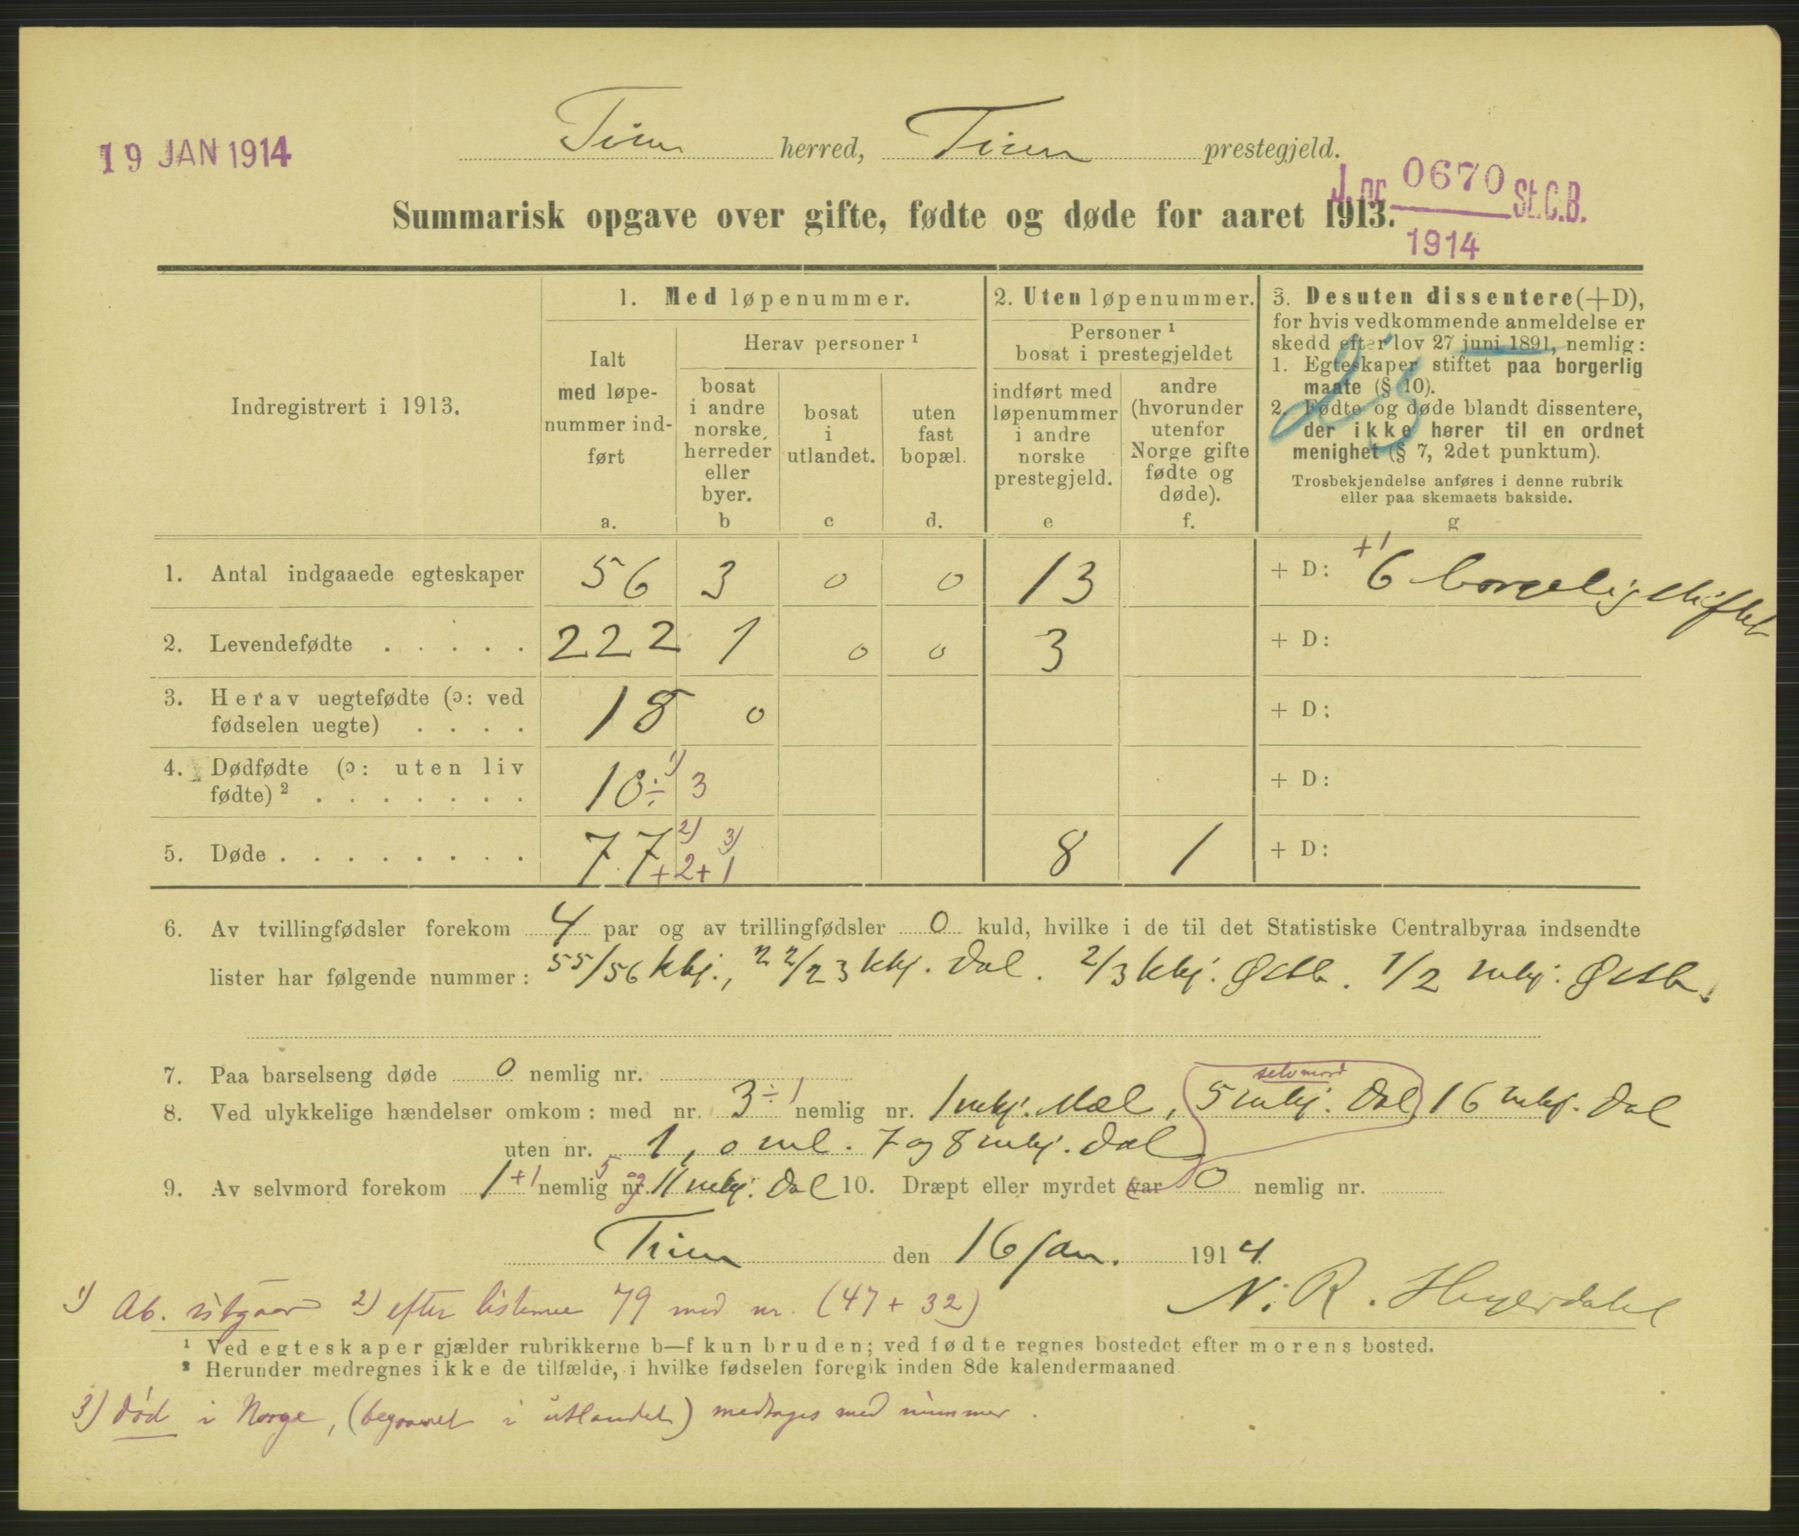 19 JAN 1914
Tinn herred, Tinn prestegjeld.
J. nr. 0670 St.C.B.
1914
Summarisk opgave over gifte, fødte og døde for aaret 1913.
Indregistrert i 1913.
1. Med løpenummer.
Ialt med løpenummer indført
a.
Herav personer ¹
bosat i andre norske herreder eller byer.
b
bosat i utlandet.
c
uten fast bopæl.
d.
2. Uten løpenummer.
Personer ¹ bosat i prestegjeldet
indført med løpenummer i andre norske prestegjeld.
e
andre (hvorunder utenfor Norge gifte fødte og døde).
f.
3. Desuten dissentere (+D),
for hvis vedkommende anmeldelse er
skedd efter lov 27 juni 1891, nemlig:
1. Egteskaper stiftet paa borgerlig
maate (§ 10).
2. Fødte og døde blandt dissentere,
der ikke hører til en ordnet
menighet (§ 7, 2det punktum).
Trosbekjendelse anføres i denne rubrik
eller paa skemaets bakside.
g
1. Antal indgaaede egteskaper 56 3 0 0 13 + D: +1 6 borgerlig stiftet
2. Levendefødte 222 1 0 0 3 + D:
3. Herav uegtefødte (ɔ: ved
fødselen uegte) 18 0 + D:
4. Dødfødte (ɔ: uten liv
fødte) ² 10 ÷ 1) 3 + D:
5. Døde 77 2) +2 3) +1 8 1 + D:
6. Av tvillingfødsler forekom 4 par og av trillingfødsler 0 kuld, hvilke i de til det Statistiske Centralbyraa indsendte
lister har følgende nummer: 55/56 kkj., 22/23 kkj. Dal. 2/3 kkj. Østb. 1/2 mkj. Østb.
7. Paa barselseng døde 0 nemlig nr.
selvmord
8. Ved ulykkelige hændelser omkom: med nr. 3 ÷1 nemlig nr. 1 mkj. Mæl, 5 mkj. Dal, 16 mkj. Dal
uten nr. 1, o ml. 7 og 8 mkj. Dal
9. Av selvmord forekom 1 +1 nemlig nr. 5 og 11 mkj. Dal 10. Dræpt eller myrdet var 0 nemlig nr.
Tinn den 16 jan. 1914.
N. R. Hegerdahl
1) Ab. utgaar 2) efter listerne 79 med nr. (47 + 32)
¹ Ved egteskaper gjælder rubrikkerne b—f kun bruden; ved fødte regnes bostedet efter morens bosted.
² Herunder medregnes ikke de tilfælde, i hvilke fødselen foregik inden 8de kalendermaaned
3) død i Norge, (begravet i utlandet) medtages med nummer.